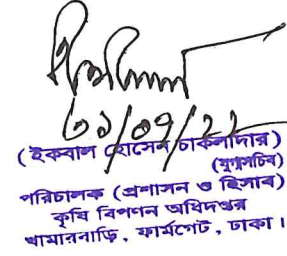 ৩১/০৭/২২
(ইকবাল হোসেন চাকলাদার)
(যুগ্মসচিব)
পরিচালক (প্রশাসন ও হিসাব)
কৃষি বিপণন অধিদপ্তর
খামারবাড়ি, ফার্মগেট, ঢাকা।